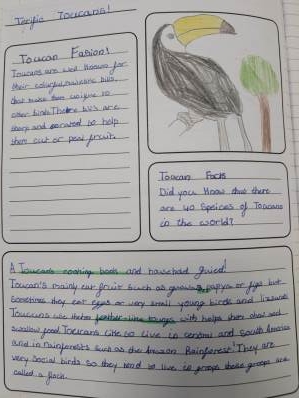 Terific Toucans!
Toucan Fasion!
Toucans are well known for
their colorful, massive bils,
that make them uniqine to
other birds. There bils are
sharp and curved to help
them cut or peal fruit.
Toucan Facts
Did you know that there
are 40 Speices of Toucans
in the world?
A Toucans nothing beats and household guied!
Toucan's mainly eat fruit such as guavas, papya or figs but
Sometimes they eat eggs or very small young birds and lizards
Toucans use there feather-like tounge with helps them and
swallow food. Toucans like to live in central and South America
and in rainforests such as the Amazon Rainforest! They are
very Social birds so they tend to live in groups these groups are
called a flock.